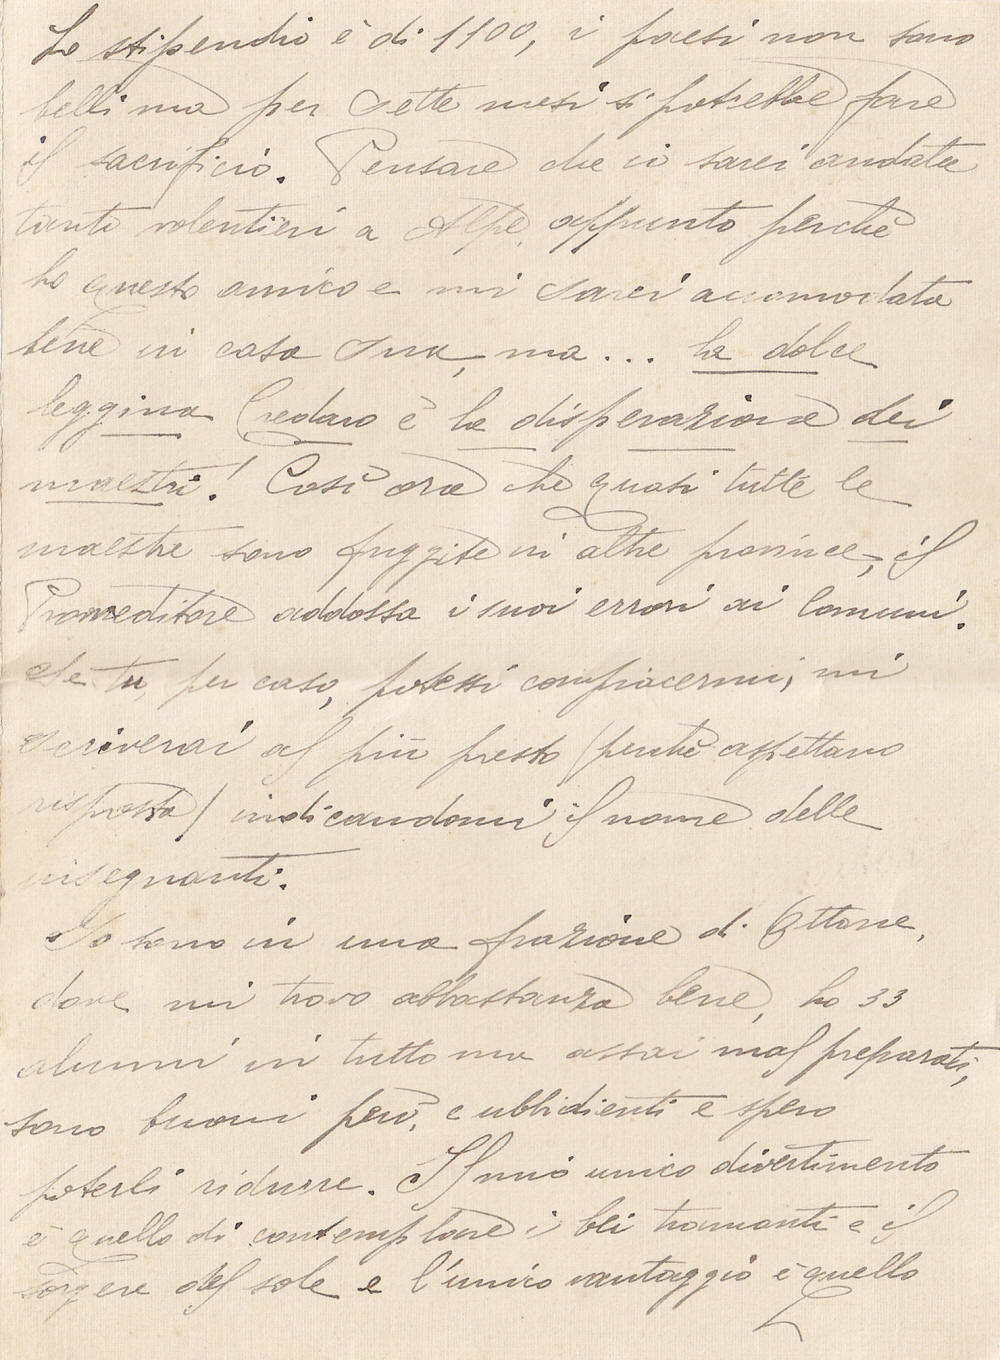 Lo stipendio è di 1100, i paesi non sono
belli ma per sette mesi si potrebbe fare
il sacrificio. Pensare che io sarei andata
tanto volentieri a Alpe, appunto perchè
ho questo amico e mi sarei accomodata
bene in casa sua, ma... la dolce
leggina Credaro è la disperazione dei
maestri! Così ora che quasi tutte le
maestre sono fuggite in altre province, il
Provveditore addossa i suoi errori ai Comuni.
Se tu, per caso, potessi compiacermi, mi
scriverai al più presto (perchè aspettano
risposta) indicandomi il nome delle
insegnanti.
Io sono in una frazione di Ottone,
dove mi trovo abbastanza bene, ho 33
alunni in tutto ma assai mal preparati,
sono buoni però, e ubbidienti e spero
poterli ridurre. Il mio unico divertimento
è quello di contemplare i bei tramonti e il
sorgere del sole e l'unico vantaggio è quello